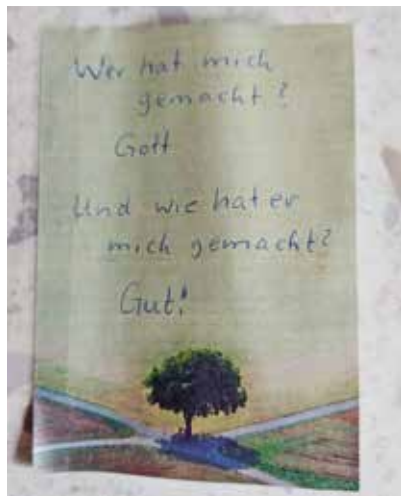 Wer hat mich
gemacht?
Gott
Und wie hat er
mich gemacht?
Gut!